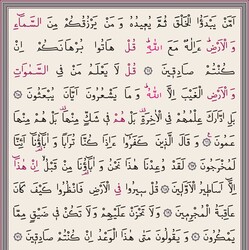 أَمَّنْ يَبْدَؤُا الْخَلْقَ ثُمَّ يُعِيدُهُ وَ مَنْ يَرْزُقُكُمْ مِنَ السَّمَاءِ
وَ الْاَرْضِ ءَاِلٰهٌ مَعَ اللّٰهِ قُلْ هَاتُوا بُرْهَانَكُمْ اِنْ
كُنْتُمْ صَادِقِينَ ۞ قُلْ لَا يَعْلَمُ مَنْ فِى السَّمٰوَاتِ
وَ الْاَرْضِ الْغَيْبَ اِلَّا اللّٰهُ وَ مَا يَشْعُرُونَ اَيَّانَ يُبْعَثُونَ ۞
بَلِ ادَّارَكَ عِلْمُهُمْ فِى الْاٰخِرَةِ بَلْ هُمْ فِى شَكٍّ مِنْهَا بَلْ هُمْ مِنْهَا
عَمُونَ ۞ وَ قَالَ الَّذِينَ كَفَرُوا ءَاِذَا كُنَّا تُرَابًا وَ اٰبَاؤُنَا اَئِنَّا
لَمُخْرَجُونَ ۞ لَقَدْ وُعِدْنَا هٰذَا نَحْنُ وَ اٰبَاؤُنَا مِنْ قَبْلُ اِنْ هٰذَا
اِلَّا اَسَاطِيرُ الْاَوَّلِينَ ۞ قُلْ سِيرُوا فِى الْاَرْضِ فَانْظُرُوا كَيْفَ كَانَ
عَاقِبَةُ الْمُجْرِمِينَ ۞ وَ لَا تَحْزَنْ عَلَيْهِمْ وَ لَا تَكُنْ فِى ضَيْقٍ مِمَّا
يَمْكُرُونَ ۞ وَ يَقُولُونَ مَتٰى هٰذَا الْوَعْدُ اِنْ كُنْتُمْ صَادِقِينَ ۞